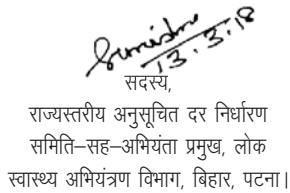 13.3.18
सदस्य,
राज्यस्तरीय अनुसूचित दर निर्धारण
समिति–सह–अभियंता प्रमुख, लोक
स्वास्थ्य अभियंत्रण विभाग, बिहार, पटना।